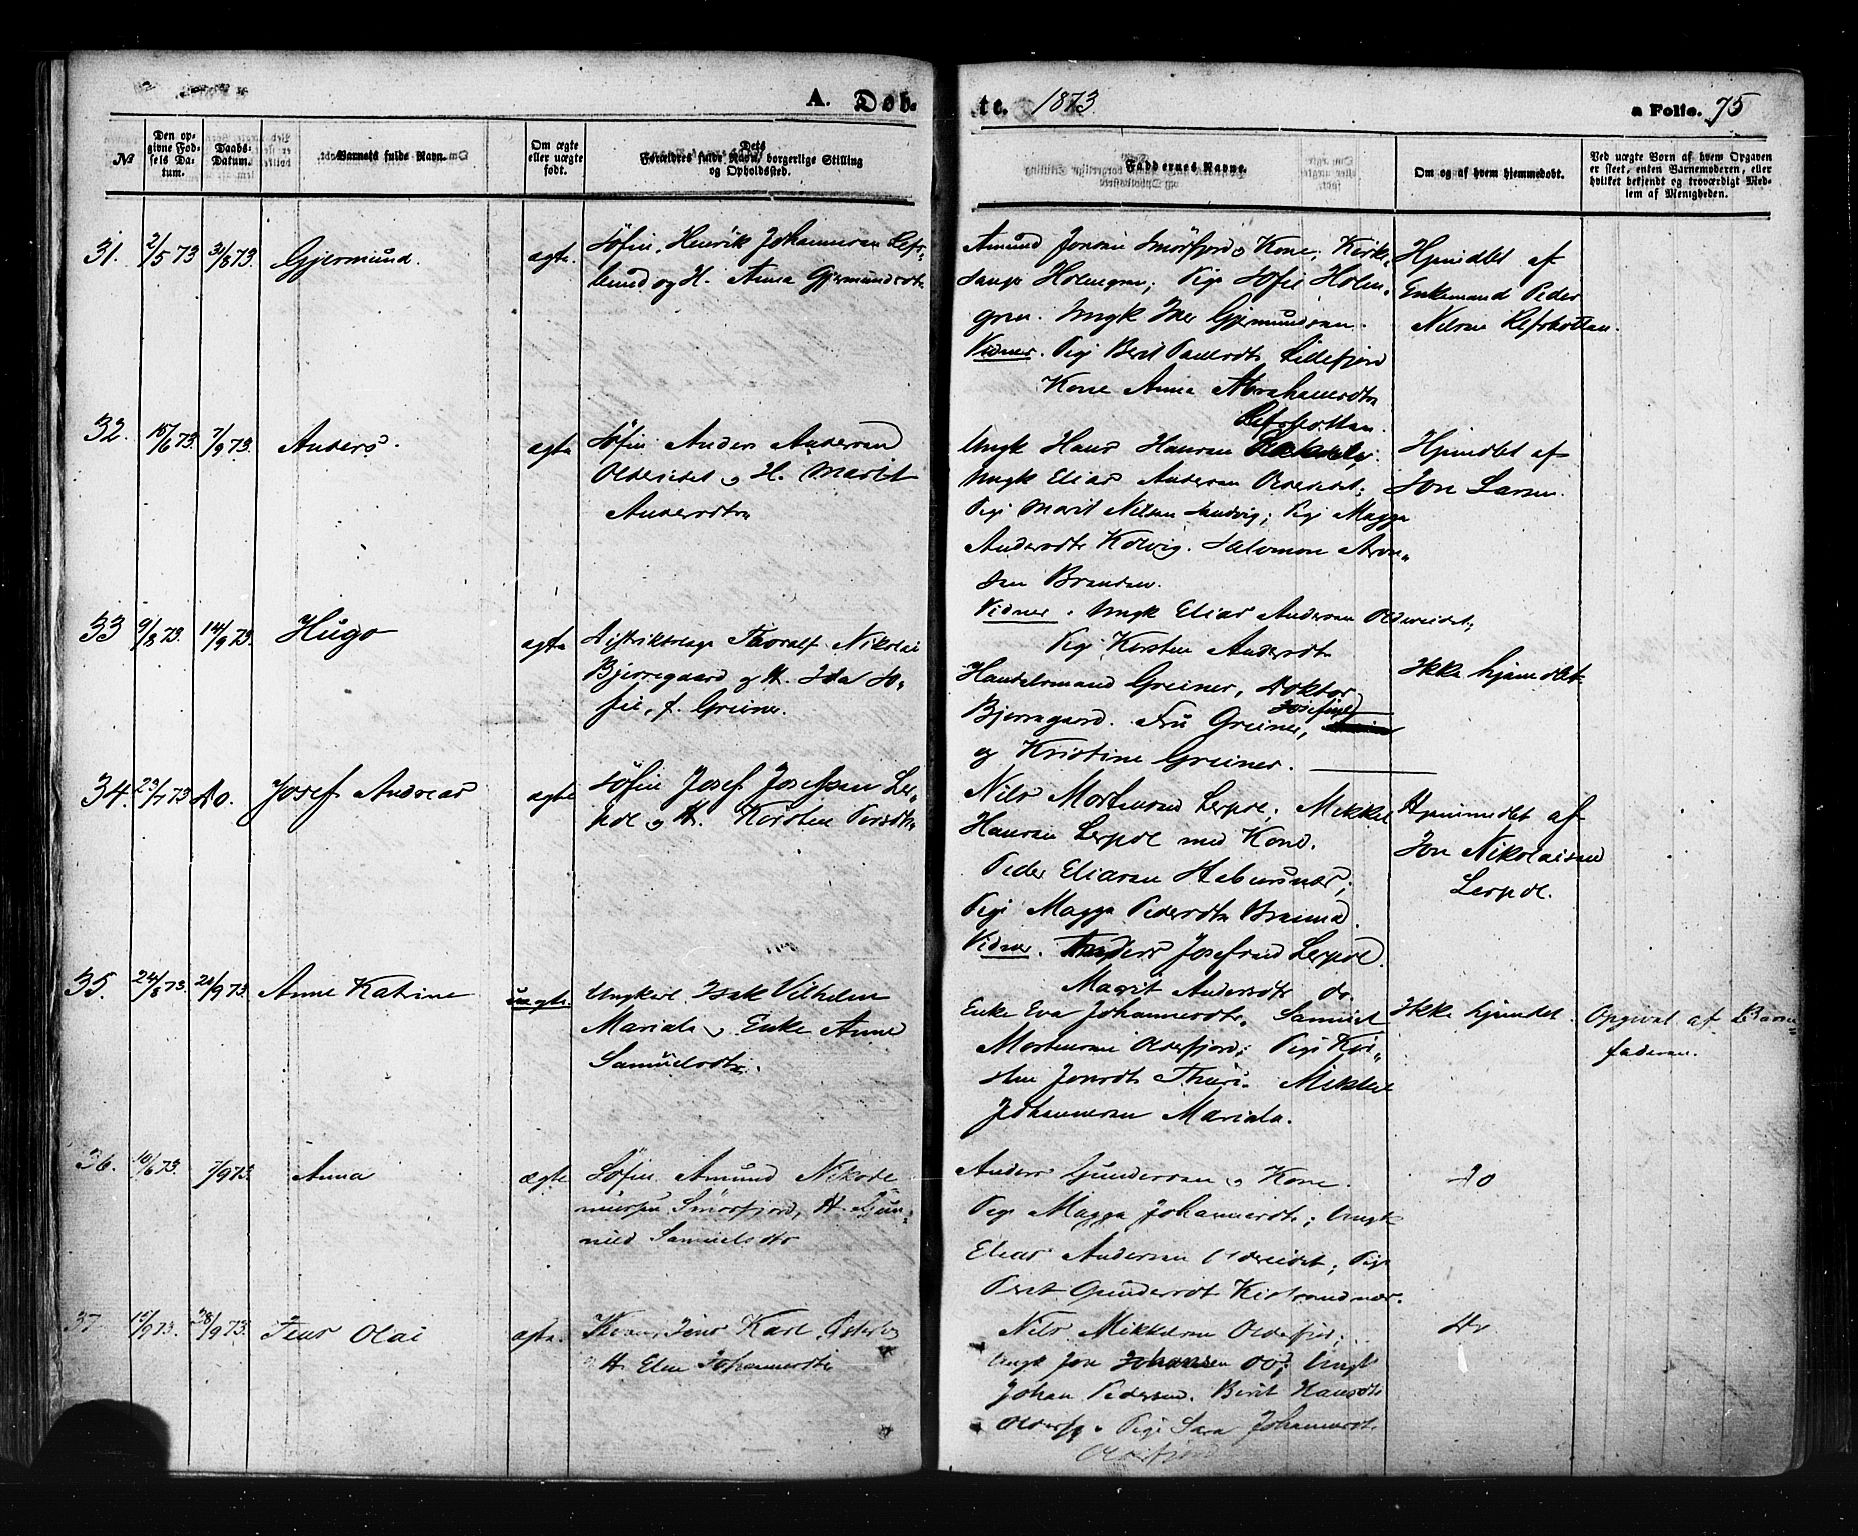 A. Døb-
te. 1873. a Folio. 75
№
Den op-
givne Fød-
sels Da-
tum.
Daabs-
Datum.
Barnets fulde Navn.
Om ægte
eller uægte
født.
Dets
Forældres fulde Navn, borgerlige Stilling
og Opholdssted.
Faddernes Navne.
Om og af hvem hjemmedøbt.
Ved uægte Børn af hvem Opgaven
er skeet, enten Barnemoderen, eller
hvilket bekjendt og troværdigt Med-
lem af Menigheden.
31. 2/5 73 31/8 73. Gjermund. ægte.
Søfin, Henrik Johannesen Refs-
bund og H. Anna Gjermundsdtr
Amund Jonsen Smørfjord, Kone; Kirke-
sanger Holmgren; Pige Sofie Holm-
gren. Ungk Iver Gjermundsen.
Vidner. Pige Berit Paulsdtr Lillefjord
Kone Anna Abrahamsdtr
Refsbotten.
Hjmdbt af
Enkemand Peder
Nilsen Refsbotten.
32. 15/6 73. 7/9 73. Anders. ægte
Søfin Anders Andersen
Oldereidet og H. Marit
Andersdtr
Ungk Hans Hansen
Ungk Elias Andersen Oldereidet;
Pige Marit Nilsen Sandvig; Pige Magga
Andersdtr Kolvig. Salomon Aron-
sen Brandsen.
Vidner. Ungk Elias Andersen Oldereidet;
Pige Kirsten Andersdtr
Hjmdbt af
Jon Larsen.
33 9/8 73. 14/9 73. Hugo ægte
Distriktslæge Thoralf Nikolai
Bjerregaard og H. Ida So-
fie, f. Greiner.
Handelsmand Greiner, Doktor
Bjerregaard. Fru Greiner, Josefine
og Kristine Greiner.
Ikke hjemdbt.
34. 29/7 73 do. Josef Andreas ægte
Søfin Josef Josefsen Ler-
pol og H. Kirsten Persdtr
Nils Mortensen Lerpol; Mikkel
Hansen Lerpol med Kone.
Peder Eliasen
Pige Magga Pedersdtr
Vidner. Anders Josefsen Lerpol.
Marit Andersdtr do.
Hjemmedbt af
Jon Nikolaisen
Lerpol.
35. 24/8 73. 28/9 73. Anne Katrine uægte
Ungkarl Isak Vilhelm
Mariala, Enke Anne
Samuelsdtr.
Enke Eva Johannesdtr. Samuel
Mortensen Oldefjord; Pige Kir-
sten Jonsdtr Thuri. Mikkel
Johannesen Mariala.
Ikke hjmdbt.
Opgivet af Barne-
faderen.
36. 10/6 73. 7/9 73. Anna ægte
Søfin Amund Nikode-
mussen Smørfjord, H. Gun-
nild Samuelsdtr
Anders Gundersen og Kone.
Pige Magga Johannesdtr; Ungk
Elias Andersen Oldereidet; Pige
Berit Gundersdtr Kistrandnæs.
do
37. 15/9 73. 28/9 73. Jens Olai ægte.
Jens Karl Østerbo
og H. Elen Johannesdtr
Nils Mikkelsen Oldefjord;
Ungk Jon Johansen do; Ungk
Johan Pedersen. Berit Hansdtr
Olderfj. Pige Sara Johannesdtr
Oldefjord
do